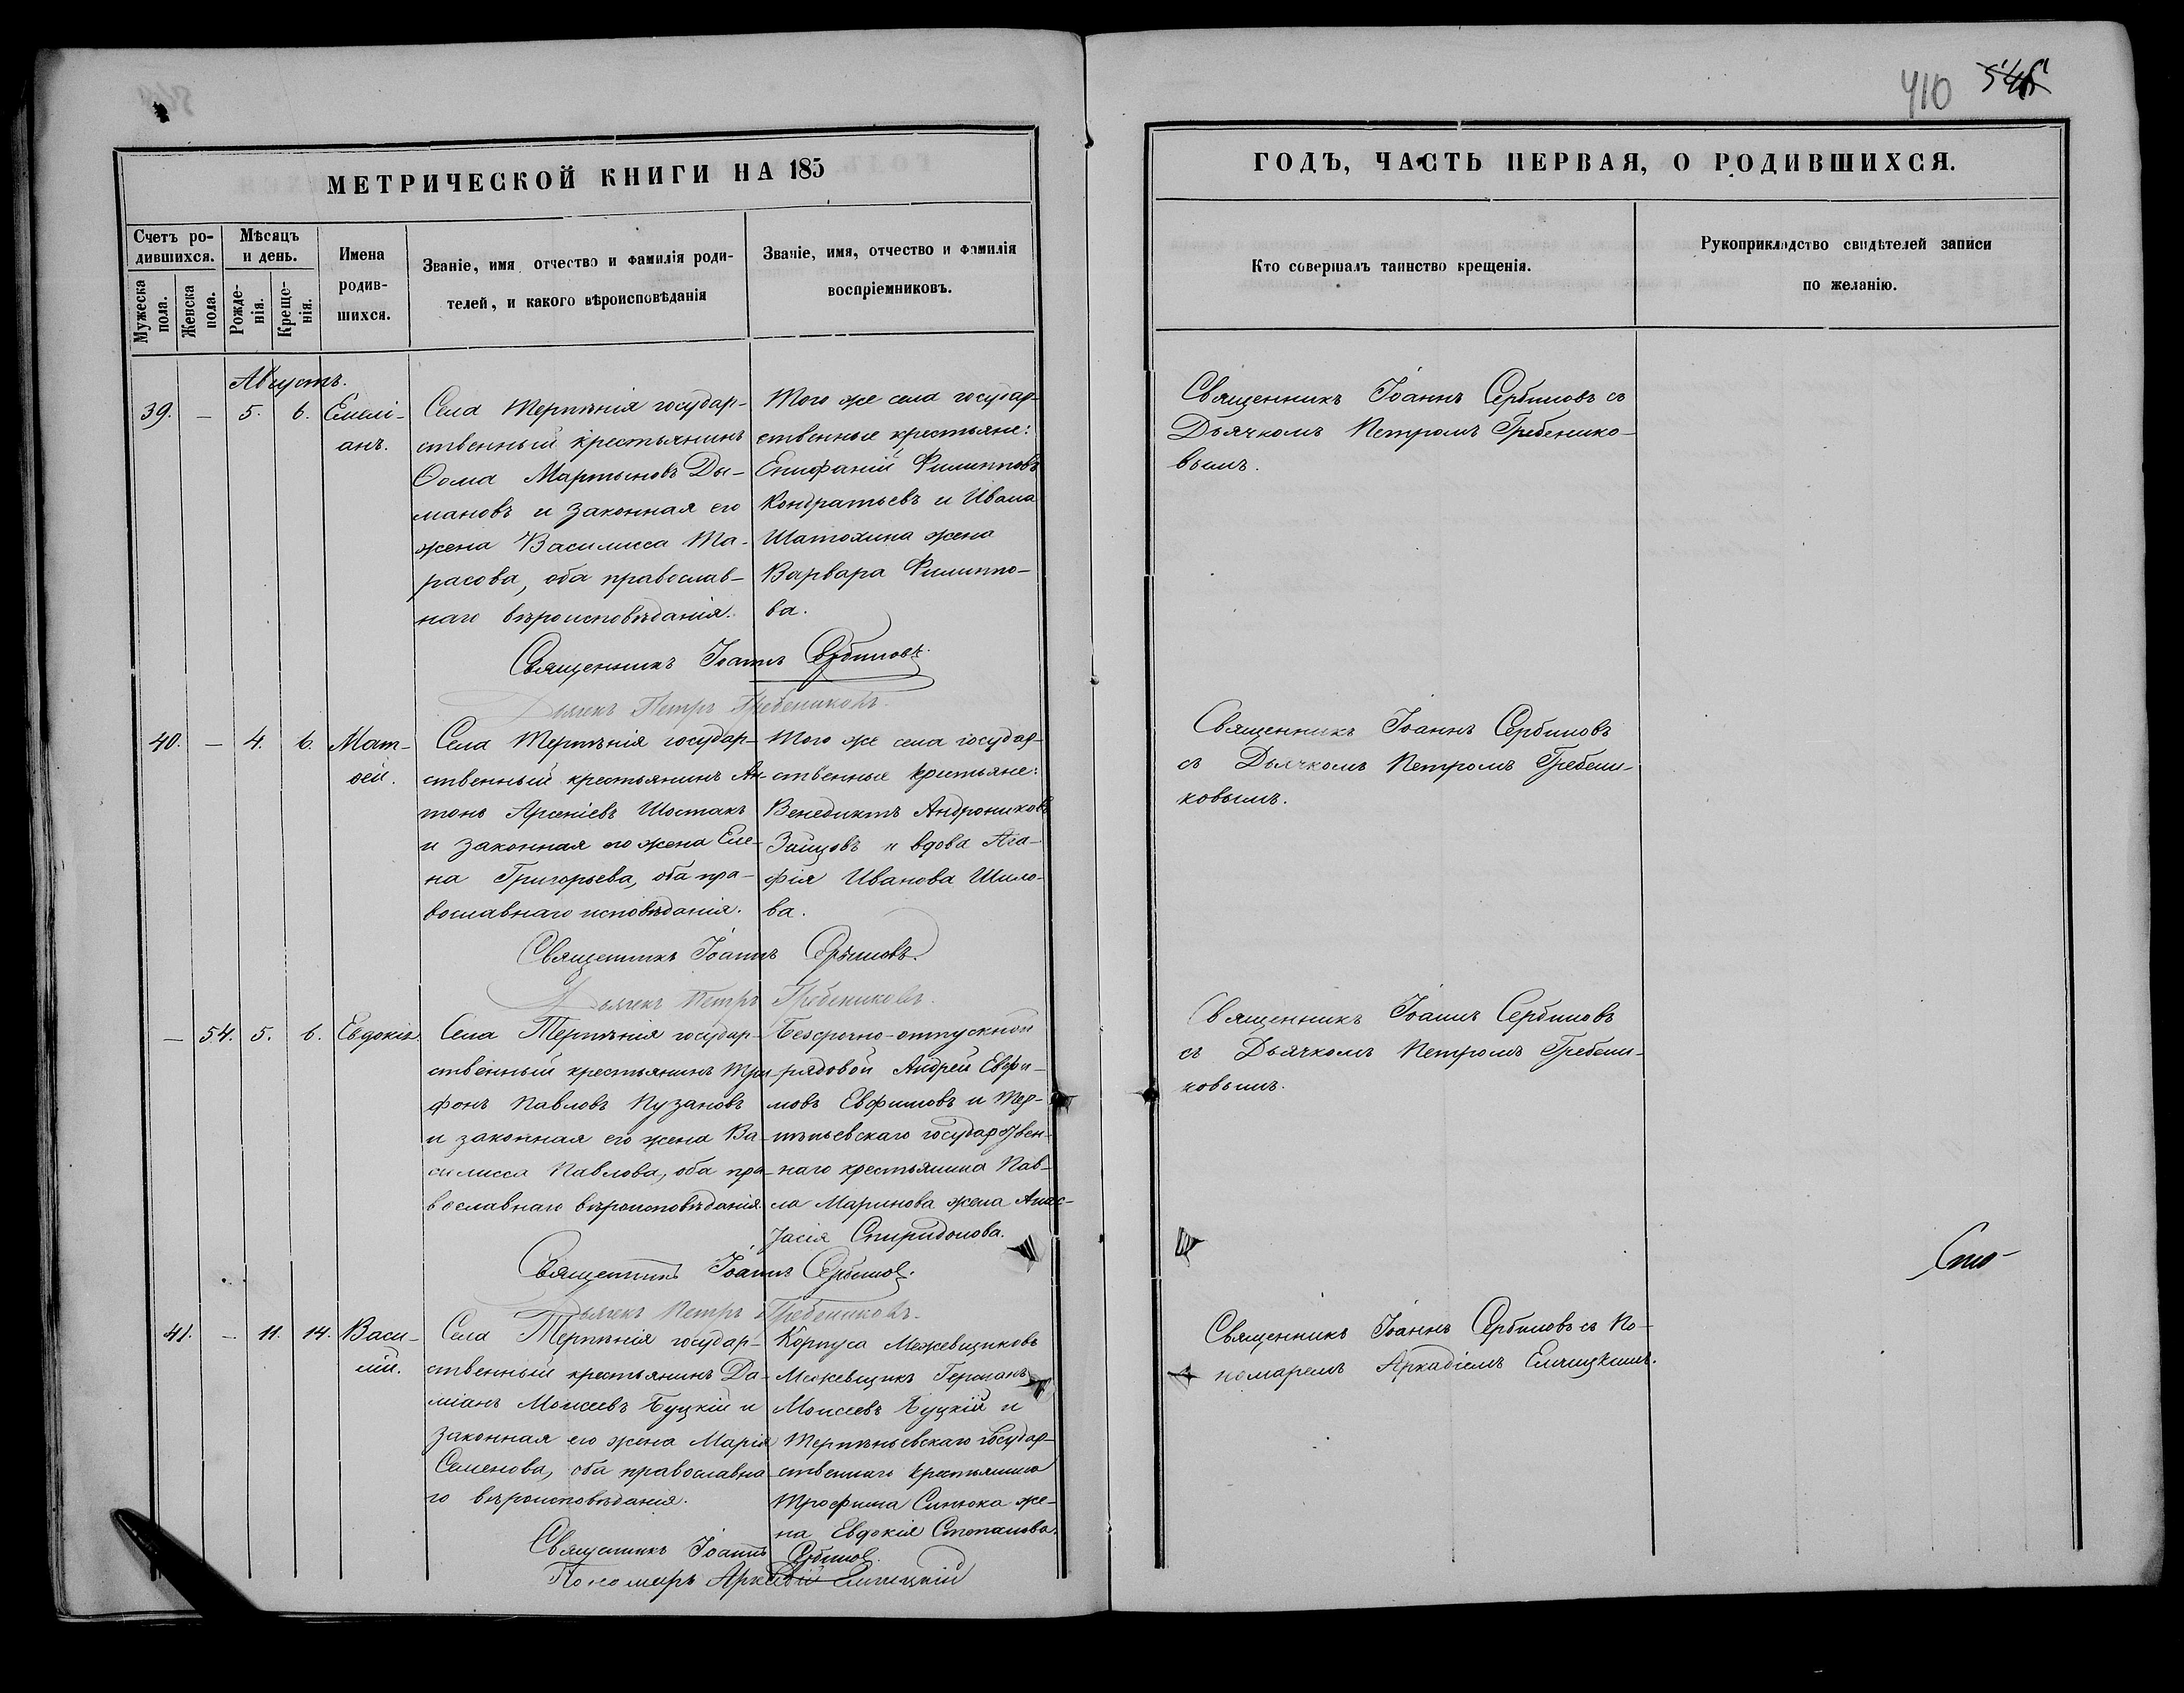 410 545
МЕТРИЧЕСКОЙ КНИГИ НА 185
Счетъ ро-
дившихся.
Мужеска
пола.
Женска
пола.
Мѣсяцъ
и день.
Рожде-
нія.
Креще-
нія.
Имена
родив-
шихся.
Званіе, имя отчество и фамилія роди-
телей, и какого вѣроисповѣданія
Званіе, имя, отчество и фамилія
воспріемниковъ.
Августъ.
39. — 5. 6.
Емелі-
анъ.
Села Терпѣнія государ-
ственный крестьянинъ
Ѳома Мартыновъ Ды-
мановъ и законная его
жена Василисса Та-
расова, оба православ-
наго вѣроисповѣданія.
Того же села государ-
ственные крестьяне:
Епифаній Филипповъ
Кондратьевъ и Ивана
Шатохина жена
Варвара Филиппо-
ва.
Священникъ Іоаннъ Сербиновъ.
Дьячекъ Петръ Гребениковъ.
40. — 4. 6.
Мат-
ѳей.
Села Терпѣнія государ-
ственный крестьянинъ Ан-
тонъ Арсеніевъ Шостакъ
и законная его жена Еле-
на Григорьева, оба пра-
вославнаго исповѣданія.
Того же села государ-
ственные крестьяне:
Венедиктъ Андрониковъ
Зайцовъ и вдова Ага-
фія Иванова Шило-
ва.
Священникъ Іоаннъ Сербиновъ.
Дьячекъ Петръ Гребениковъ.
— 54. 5. 6.
Евдокія.
Села Терпѣнія государ-
ственный крестьянинъ Три-
фонъ Павловъ Пузановъ
и законная его жена Ва-
силисса Павлова, оба пра-
вославнаго вѣроисповѣданія.
Безсрочно-отпускной
рядовой Андрей Евфи-
мовъ Евфимовъ и Тер-
пѣньевскаго государствен-
наго крестьянина Пав-
ла Маринова жена Анас-
тасія Спиридонова.
Священникъ Іоаннъ Сербиновъ.
Дьячекъ Петръ Гребениковъ.
41. — 11. 14.
Васи-
лій.
Села Терпѣнія государ-
ственный крестьянинъ Да-
міанъ Моисеевъ Буцкій и
законная его жена Марія
Семенова, оба православна-
го вѣроисповѣданія.
Корпуса Межевщиковъ
Межевщикъ Германъ
Моисеевъ Буцкій и
Терпѣньевскаго государ-
ственнаго крестьянина
Трофима Синюка же-
на Евдокія Степанова.
Священникъ Іоаннъ Сербиновъ
Пономарь Аркадій
ГОДЪ, ЧАСТЬ ПЕРВАЯ, О РОДИВШИХСЯ.
Кто совершалъ таинство крещенія.
Рукоприкладство свидѣтелей записи
по желанію.
Священникъ Іоаннъ Сербиновъ съ
Дьячкомъ Петромъ Гребенико-
вымъ.
Священникъ Іоаннъ Сербиновъ
съ Дьячкомъ Петромъ Гребени-
ковымъ.
Священникъ Іоаннъ Сербиновъ
съ Дьячкомъ Петромъ Гребени-
ковымъ.
Сто-
Священникъ Іоаннъ Сербиновъ съ По-
номаремъ Аркадіемъ